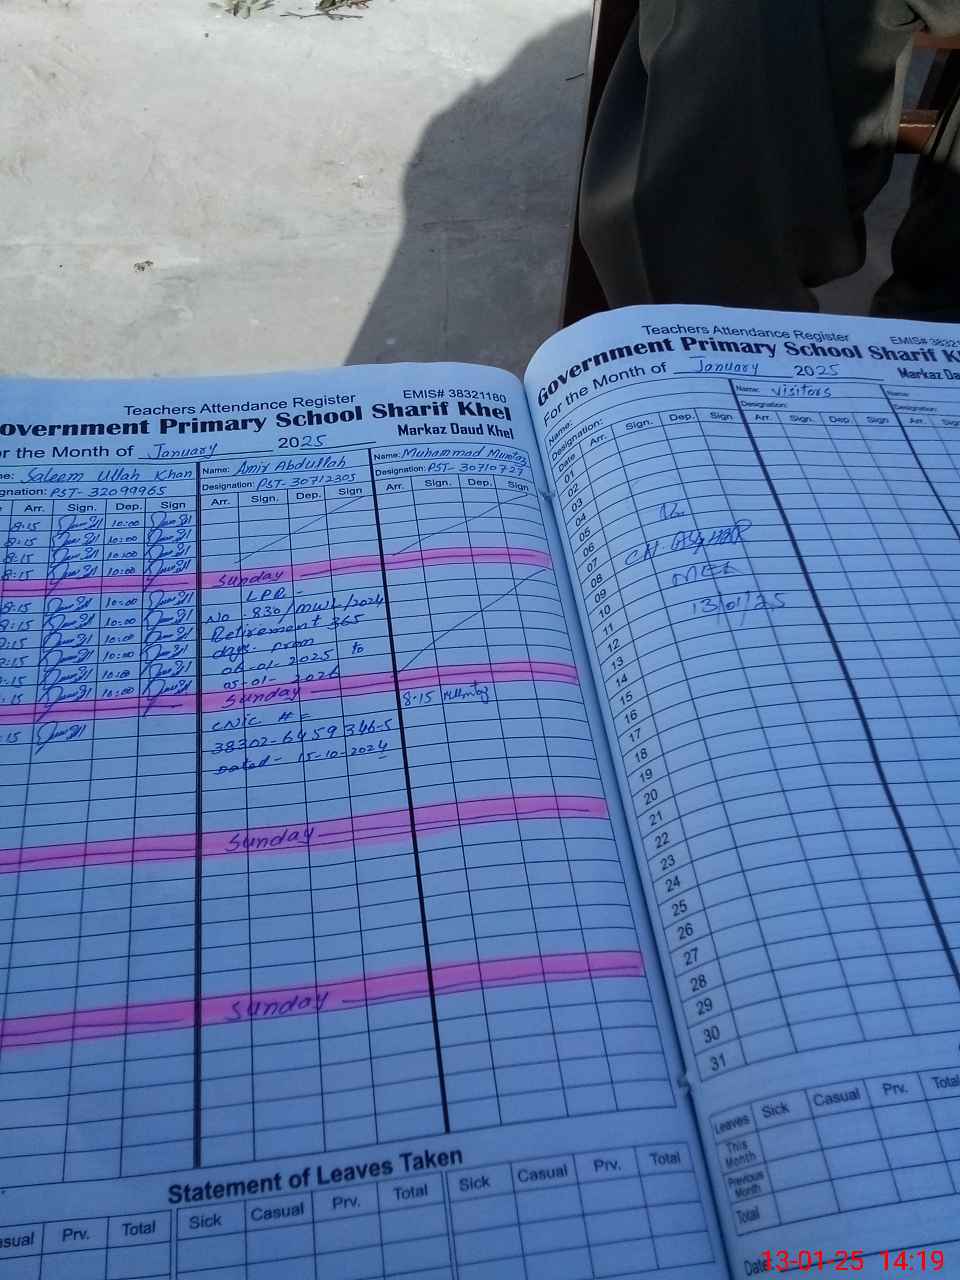 Teachers Attendance Register EMIS# 38321180
overnment Primary School Sharif Khel
or the Month of January 2025 Markaz Daud Khel
me: Saleem Ullah Khan
gnation: PST- 32099965
Arr. Sign. Dep. Sign
8:15 10:00
8:15 10:00
8:15 10:00
8:15 10:00
8:15 10:00
8:15 10:00
8:15 10:00
8:15 10:00
8:15 10:00
15 10:00
15
Name: Amir Abdullah
Designation: PST- 30712305
Arr. Sign. Dep. Sign
Sunday
LPR -
No - 830/MWL/2024
Retirement 365
days. From
06-01-2025 to
05-01-2026
Sunday
CNIC # =
38302-6459346-5
Dated- 15-10-2024
Sunday
Sunday
Name: Muhammad Mumtaz
Designation: PST- 30710727
Arr. Sign. Dep. Sign
8-15 Mumtaz
Statement of Leaves Taken
asual Prv. Total Sick Casual Prv. Total Sick Casual Prv. Total
Teachers Attendance Register EMIS# 3832
Government Primary School Sharif K
For the Month of January 2025 Markaz Da
Name: Name: visitors Name:
Designation: Designation: Designation:
Date Arr. Sign. Dep. Sign Arr. Sign. Dep. Sign Arr. Sign
01
02
03
04
05
06
07
08
09
10
11
12
13
14
15
16
17
18
19
20
21
22
23
24
25
26
27
28
29
30
31
MEA
13/01/25
Leaves Sick Casual Prv. Total
This Month
Previous Month
Total
Date
13-01-25 14:19